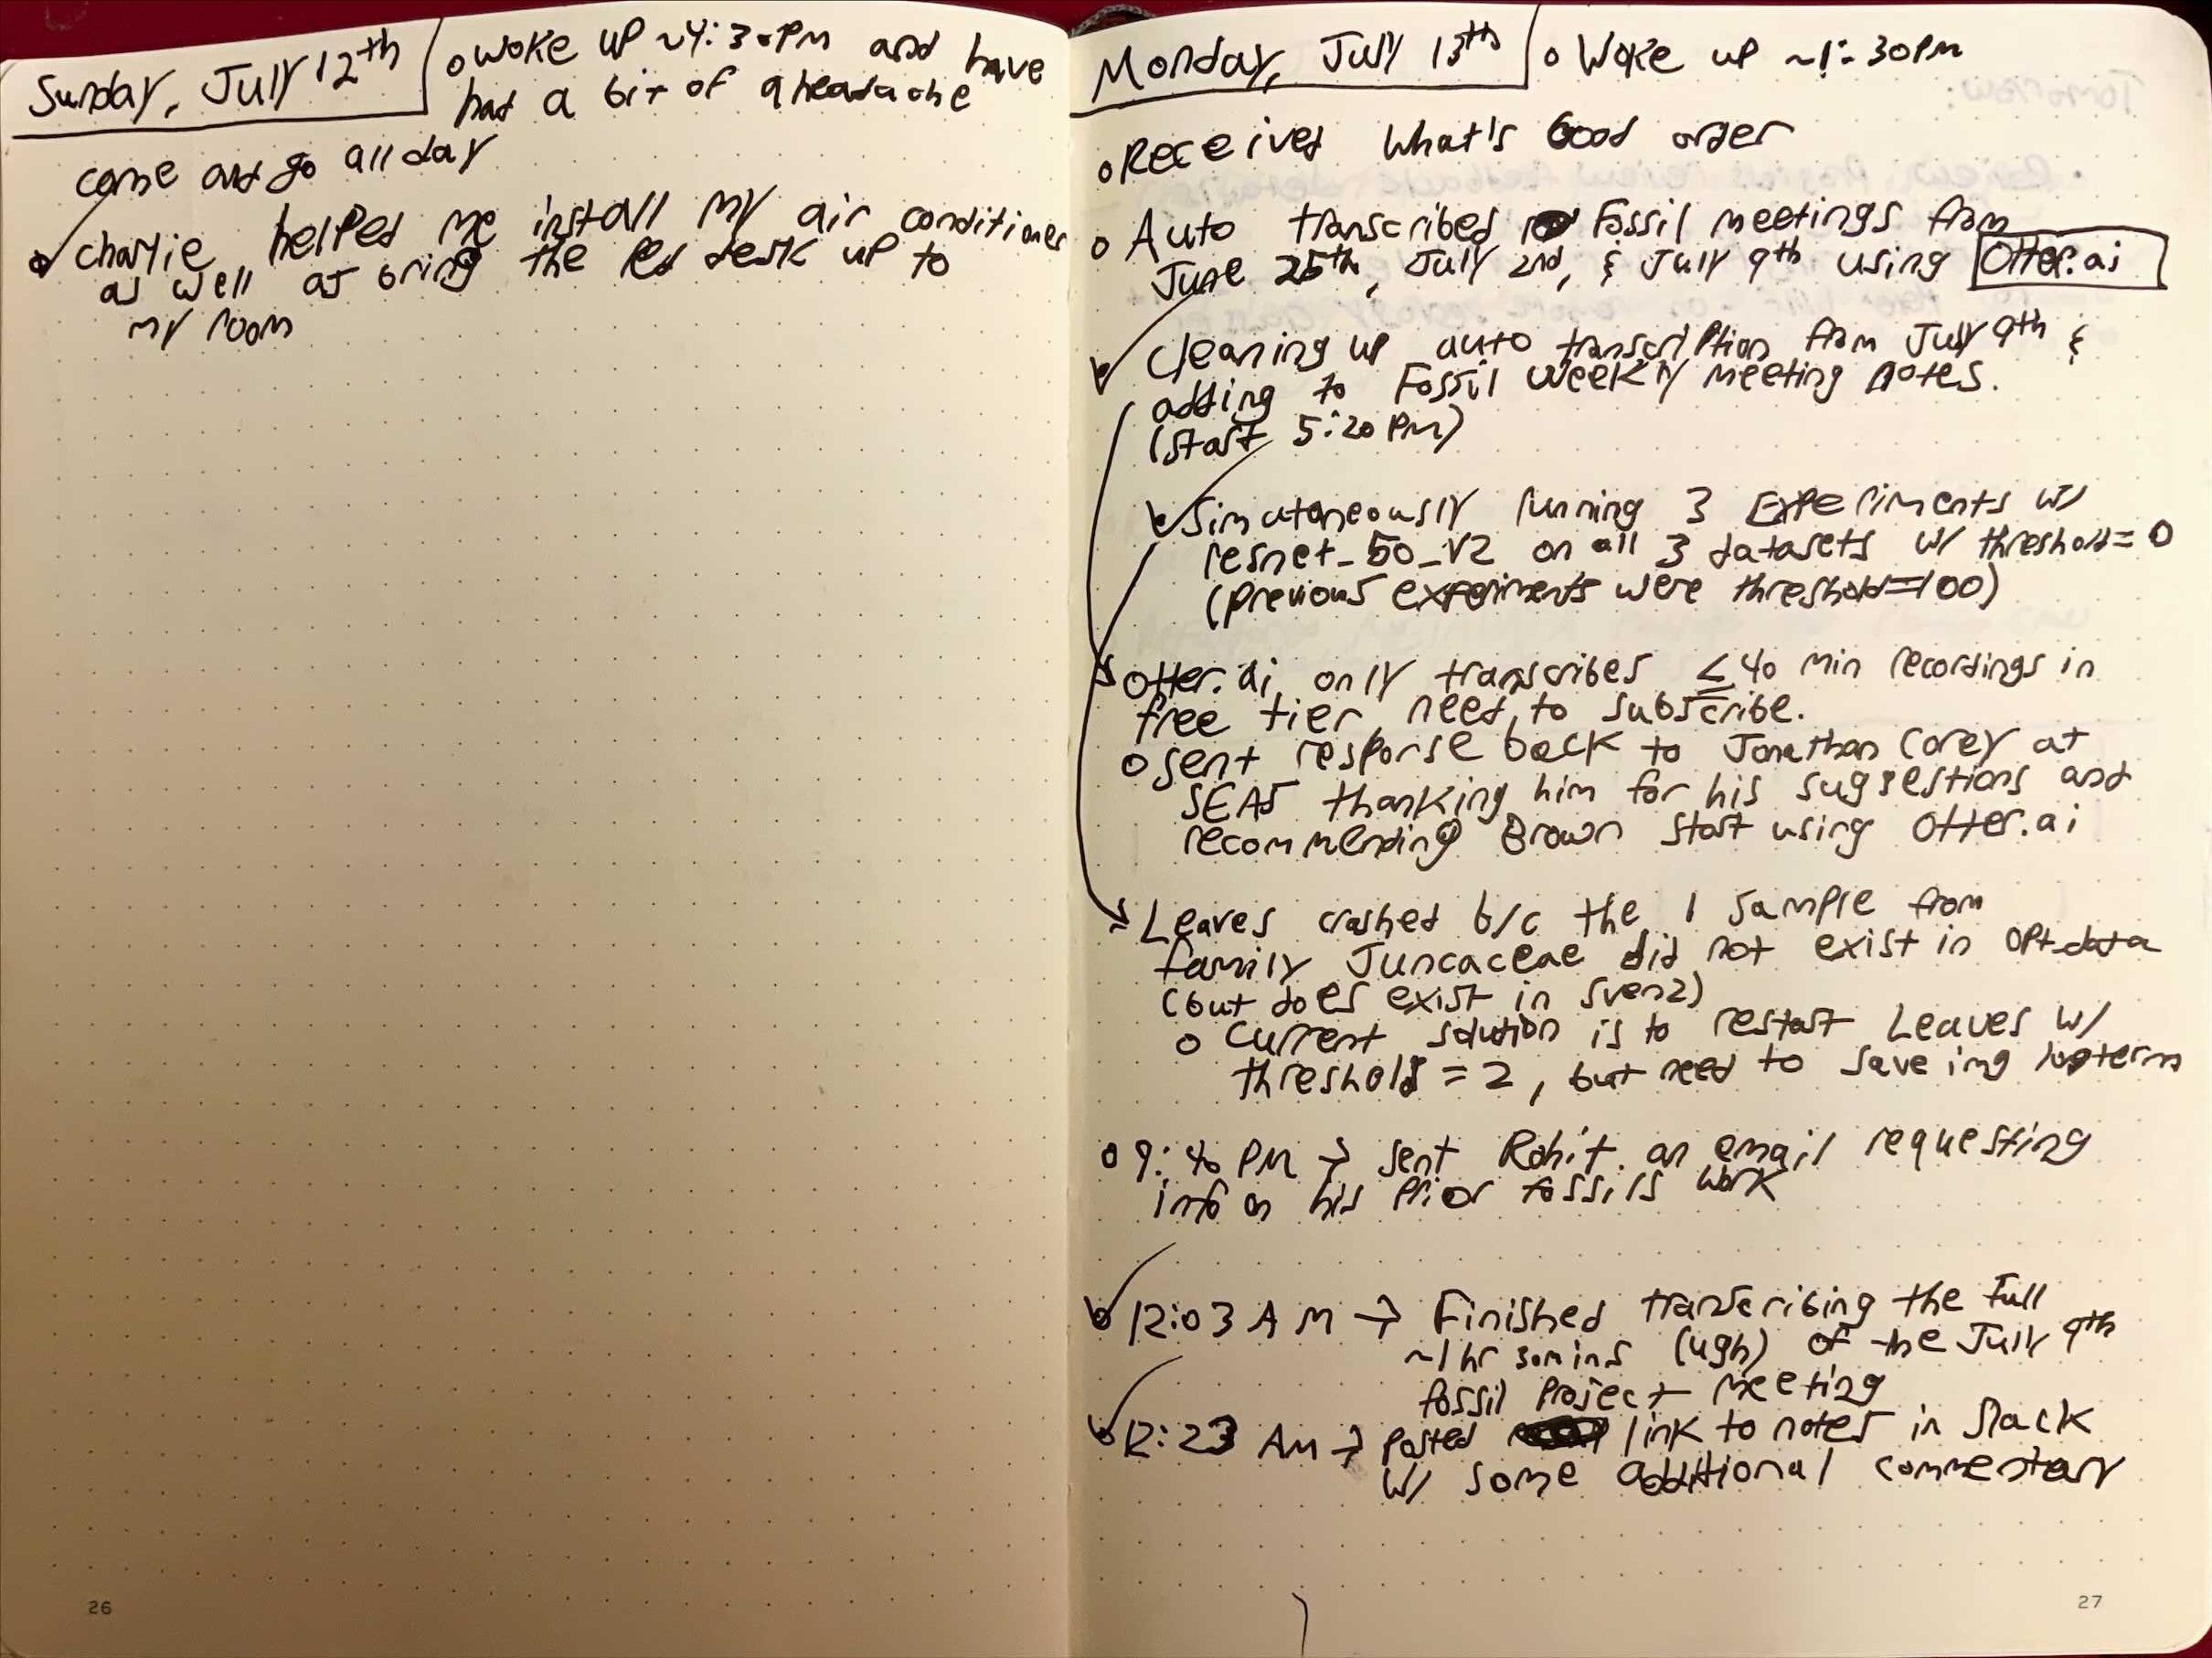 Sunday, July 12th
o woke up ~4:30PM and have
had a bit of a headache
come and go all day
o Charlie helped me install my air conditioner
as well as bring the red desk up to
my room
26
Monday, July 13th
o Woke up ~1:30PM
o Received What's Good order
o Auto transcribed Fossil meetings from
June 25th, July 2nd, & July 9th using Otter.ai
Cleaning up auto transcription from July 9th &
adding to Fossil Weekly Meeting Notes.
(start 5:20 PM)
Simutaneously running 3 Experiments w/
resnet_50_v2 on all 3 datasets w/ threshold=0
(previous experiments were threshold=100)
Otter.ai only transcribes ≤40 min recordings in
free tier, need to subscribe.
o sent response back to Jonathan Corey at
SEAS thanking him for his suggestions and
recommending Brown start using Otter.ai
Leaves crashed b/c the 1 sample from
family Juncaceae did not exist in opt_data
(but does exist in sven2)
o Current solution is to restart Leaves w/
threshold = 2, but need to save img longterm
o 9:40 PM → sent Rohit an email requesting
info on his prior fossils work
o 12:03 AM → Finished transcribing the full
~1 hr 30mins (ugh) of the July 9th
fossil Project Meeting
o 12:23 AM → Posted link to notes in Slack
w/ some additional commentary
27